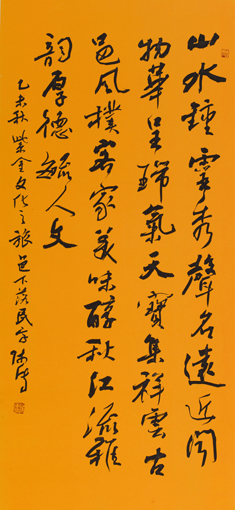 山水钟灵秀声名远近闻
物华呈瑞气天宝集祥云古
邑风朴客家美味醇秋江流雅
韵厚德毓人文
乙未秋紫金文化之旅邑下